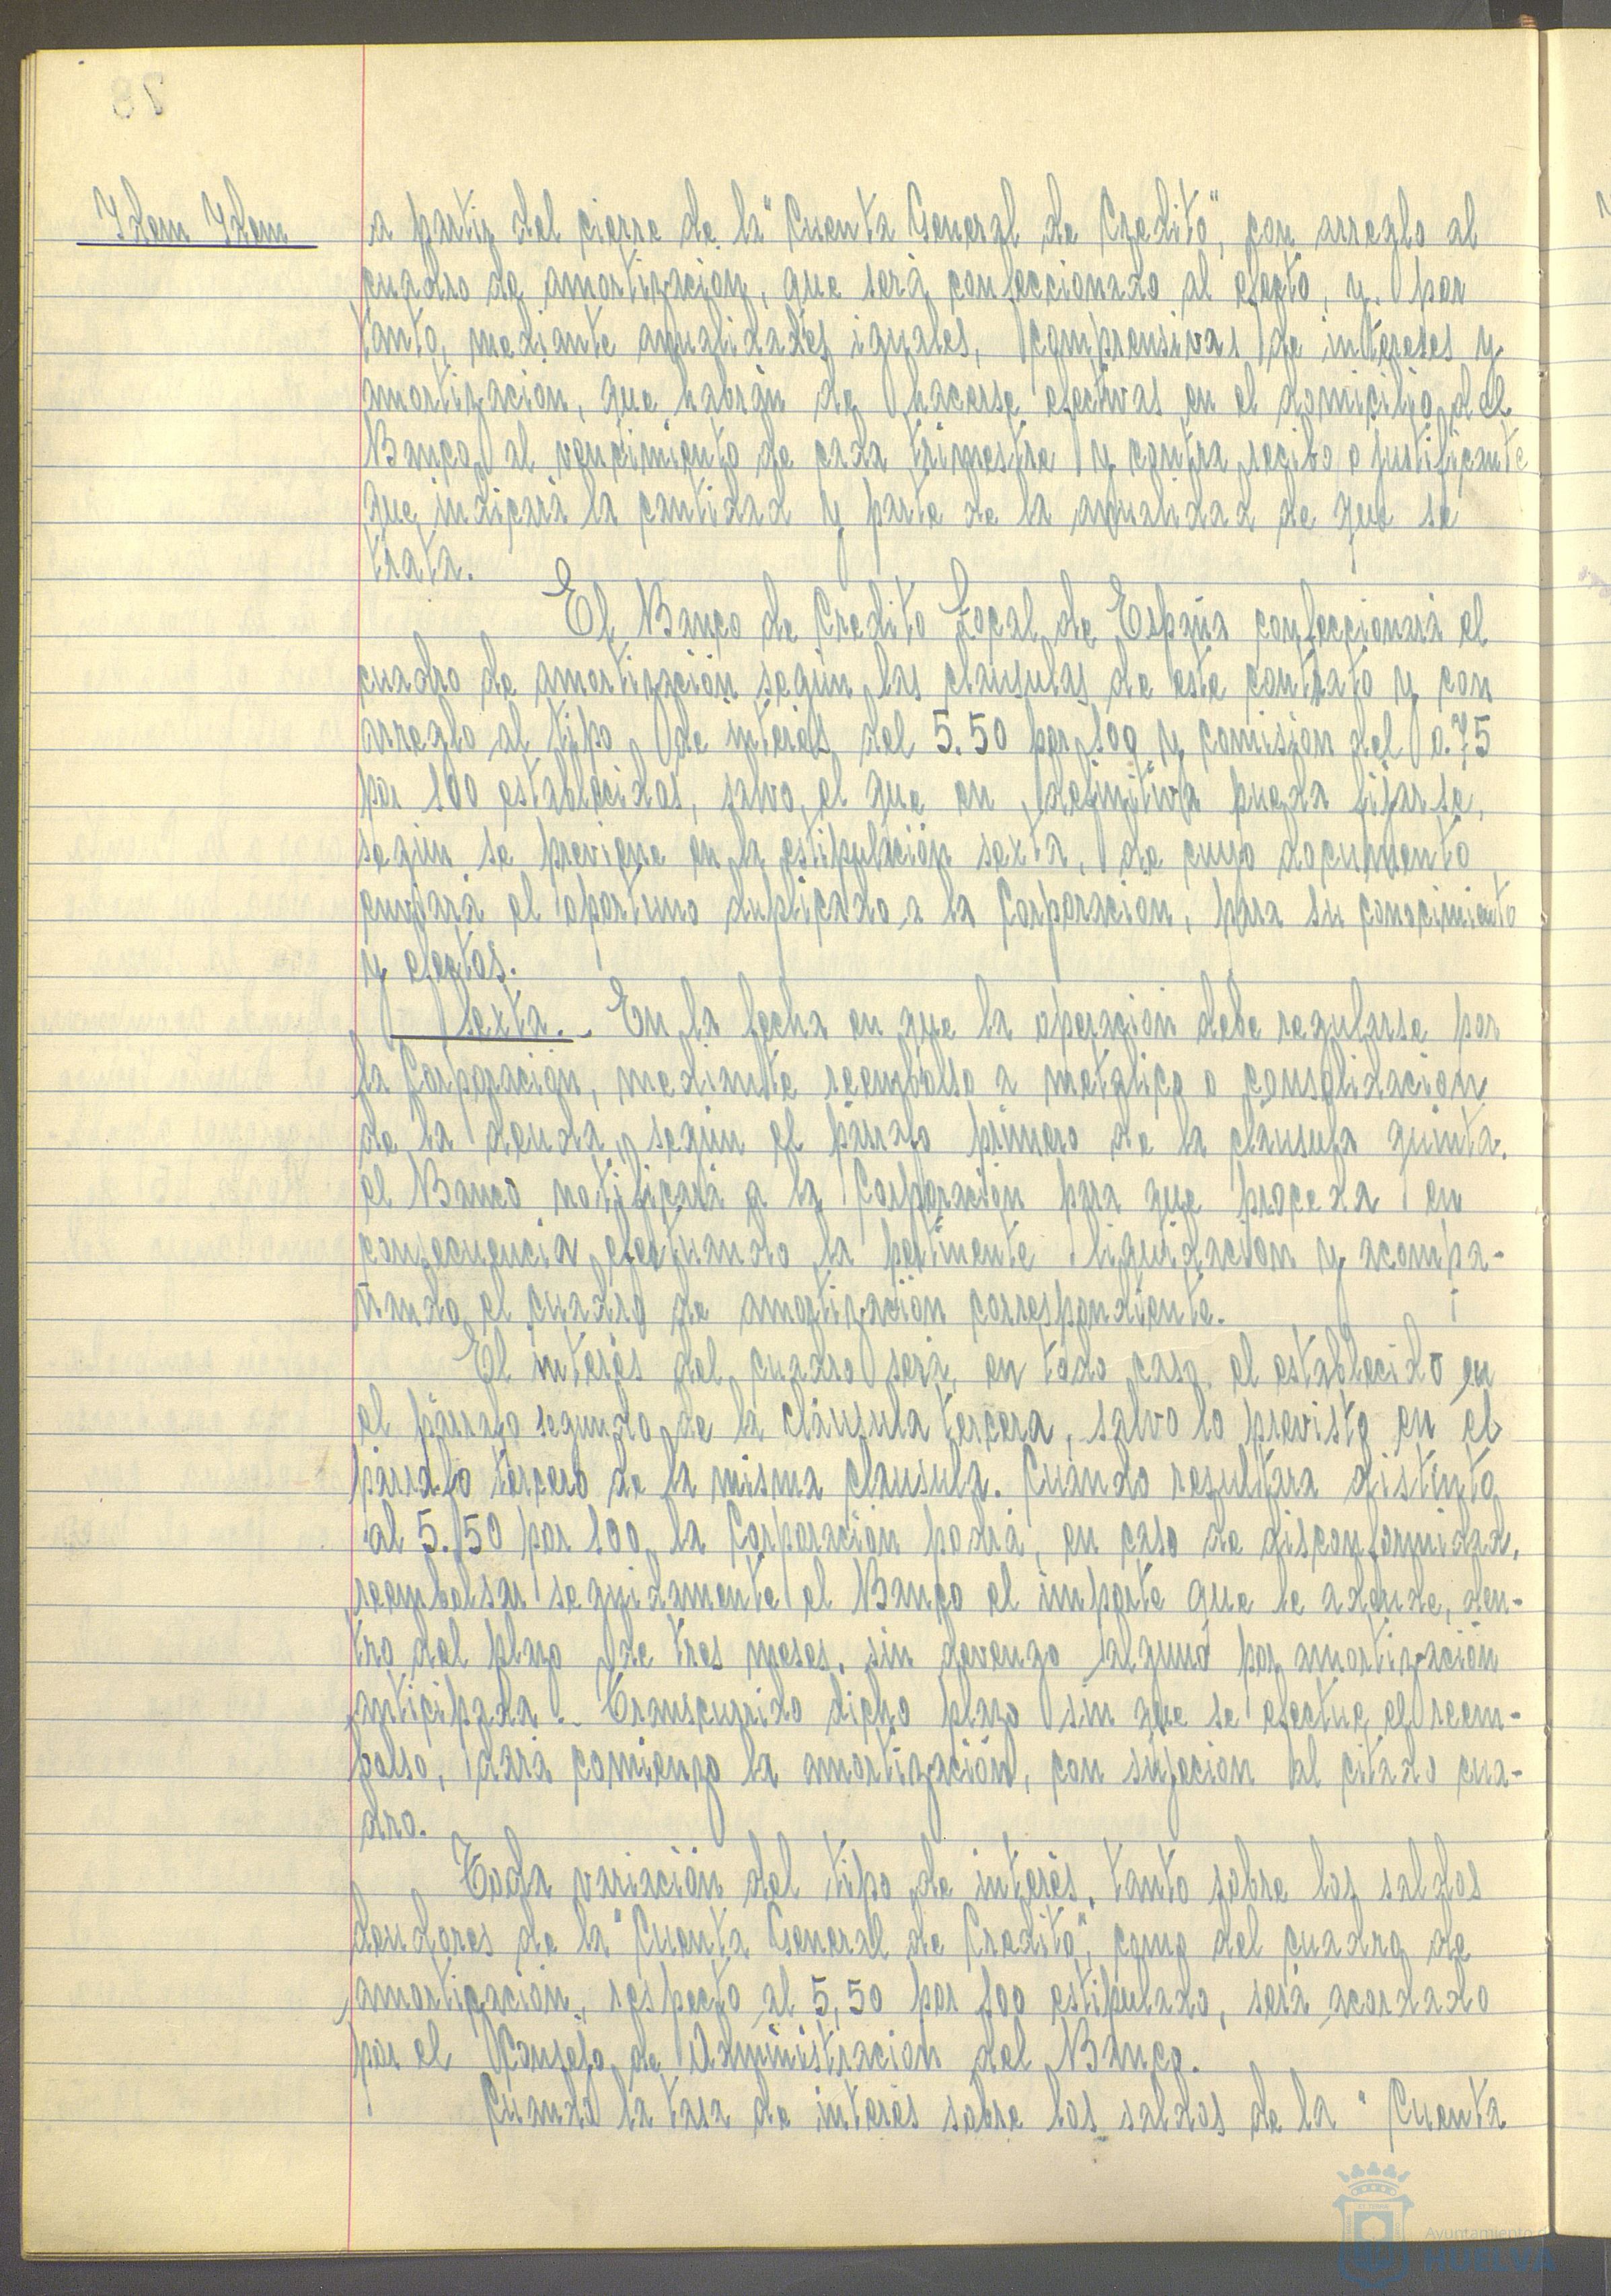 Idem Idem
a partir del cierre de la "Cuenta General de Credito", con arreglo al
cuadro de amortización, que será confeccionado al efecto, y, por
tanto, mediante anualidades iguales, comprensivas de intereses y
amortización, que habrán de hacerse efectivas en el domicilio del
Banco al vencimiento de cada trimestre y contra recibo o justificante
que indicará la cantidad y parte de la anualidad de que se
trata.
El Banco de Credito Local de España confeccionará el
cuadro de amortización según las clausulas de este contrato y con
arreglo al tipo de interés del 5.50 por 100 y comision del 0.75
por 100 establecidos, salvo el que en definitiva pueda fijarse,
según se previene en la estipulación sexta, de cuyo documento
enviará el oportuno duplicado a la Corporacion, para su conocimiento
y efectos.
Sexta.- En la fecha en que la operación debe regularse por
la Corporación, mediante reembolso a metálico o consolidación
de la deuda, según el párrafo primero de la clausula quinta,
el Banco notificará a la Corporación para que proceda en
consecuencia efectuando la pertinente liquidación y acompa-
ñando el cuadro de amortización correspondiente.
El interés del cuadro será, en todo caso, el establecido en
el párrafo segundo de la cláusula tercera, salvo lo previsto en el
párrafo tercero de la misma clausula. Cuando resultara distinto
al 5.50 por 100, la Corporación podrá, en caso de disconformidad,
reembolsar seguidamente el Banco el importe que le adeude, den-
tro del plazo de tres meses, sin devengo alguno por amortización
anticipada.- Transcurrido dicho plazo sin que se efectue el reem-
bolso, dará comienzo la amortización, con sujecion al citado cua-
dro.
Toda variación del tipo de interés, tanto sobre los saldos
deudores de la "Cuenta General de Credito", como del cuadro de
amortización, respecto al 5,50 por 100 estipulado, será acordado
por el Consejo de Administracion del Banco.
Cuando la tasa de interés sobre los saldos de la "Cuenta
Ayuntamiento
HUELVA